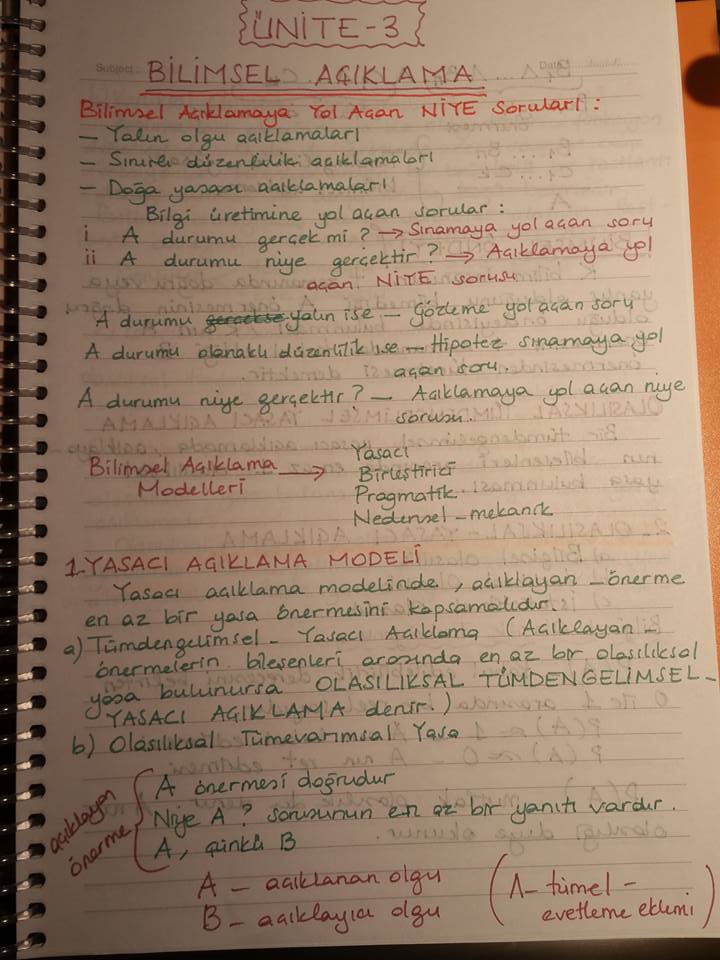 ÜNİTE-3
Subject: Date:
BİLİMSEL AÇIKLAMA
Bilimsel Açıklamaya Yol Açan NİYE Soruları:
– Yalın olgu açıklamaları
– Sınırlı düzenlilik açıklamaları
– Doğa yasası açıklamaları
Bilgi üretimine yol açan sorular:
i A durumu gerçek mi? → Sınamaya yol açan soru
ii A durumu niye gerçektir? → Açıklamaya yol
açan NİYE sorusu
A durumu yalın ise – Gözleme yol açan soru
A durumu olanaklı düzenlilik ise – Hipotez sınamaya yol
açan soru.
A durumu niye gerçektir? – Açıklamaya yol açan niye
sorusu.
Bilimsel Açıklama
Modelleri →
Yasacı
Birleştirici
Pragmatik
Nedensel – mekanik
1. YASACI AÇIKLAMA MODELİ
Yasacı açıklama modelinde, açıklayan – önerme
en az bir yasa önermesini kapsamalıdır.
a) Tümdengelimsel – Yasacı Açıklama (Açıklayan –
önermelerin bileşenleri arasında en az bir olasılıksal
yasa bulunursa OLASILIKSAL TÜMDENGELİMSEL –
YASACI AÇIKLAMA denir.)
b) Olasılıksal Tümevarımsal Yasa
açıklayan
önerme
A önermesi doğrudur
Niye A? sorusunun en az bir yanıtı vardır.
A, çünkü B
A – açıklanan olgu
B – açıklayıcı olgu
(Λ – tümel –
evetleme eklemi)